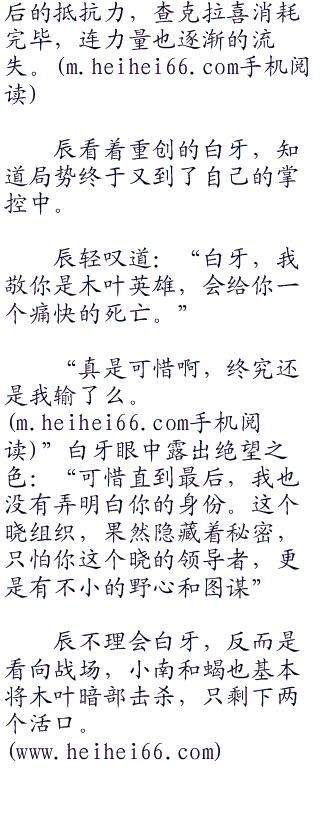 后的抵抗力，查克拉喜消耗
完毕，连力量也逐渐的流
失。(m.heihei66.com手机阅
读)
辰看着重创的白牙，知
道局势终于又到了自己的掌
控中。
辰轻叹道：“白牙，我
敬你是木叶英雄，会给你一
个痛快的死亡。”
“真是可惜啊，终究还
是我输了么。
(m.heihei66.com手机阅
读)”白牙眼中露出绝望之
色：“可惜直到最后，我也
没有弄明白你的身份。这个
晓组织，果然隐藏着秘密，
只怕你这个晓的领导者，更
是有不小的野心和图谋”
辰不理会白牙，反而是
看向战场，小南和蝎也基本
将木叶暗部击杀，只剩下两
个活口。
(www.heihei66.com)